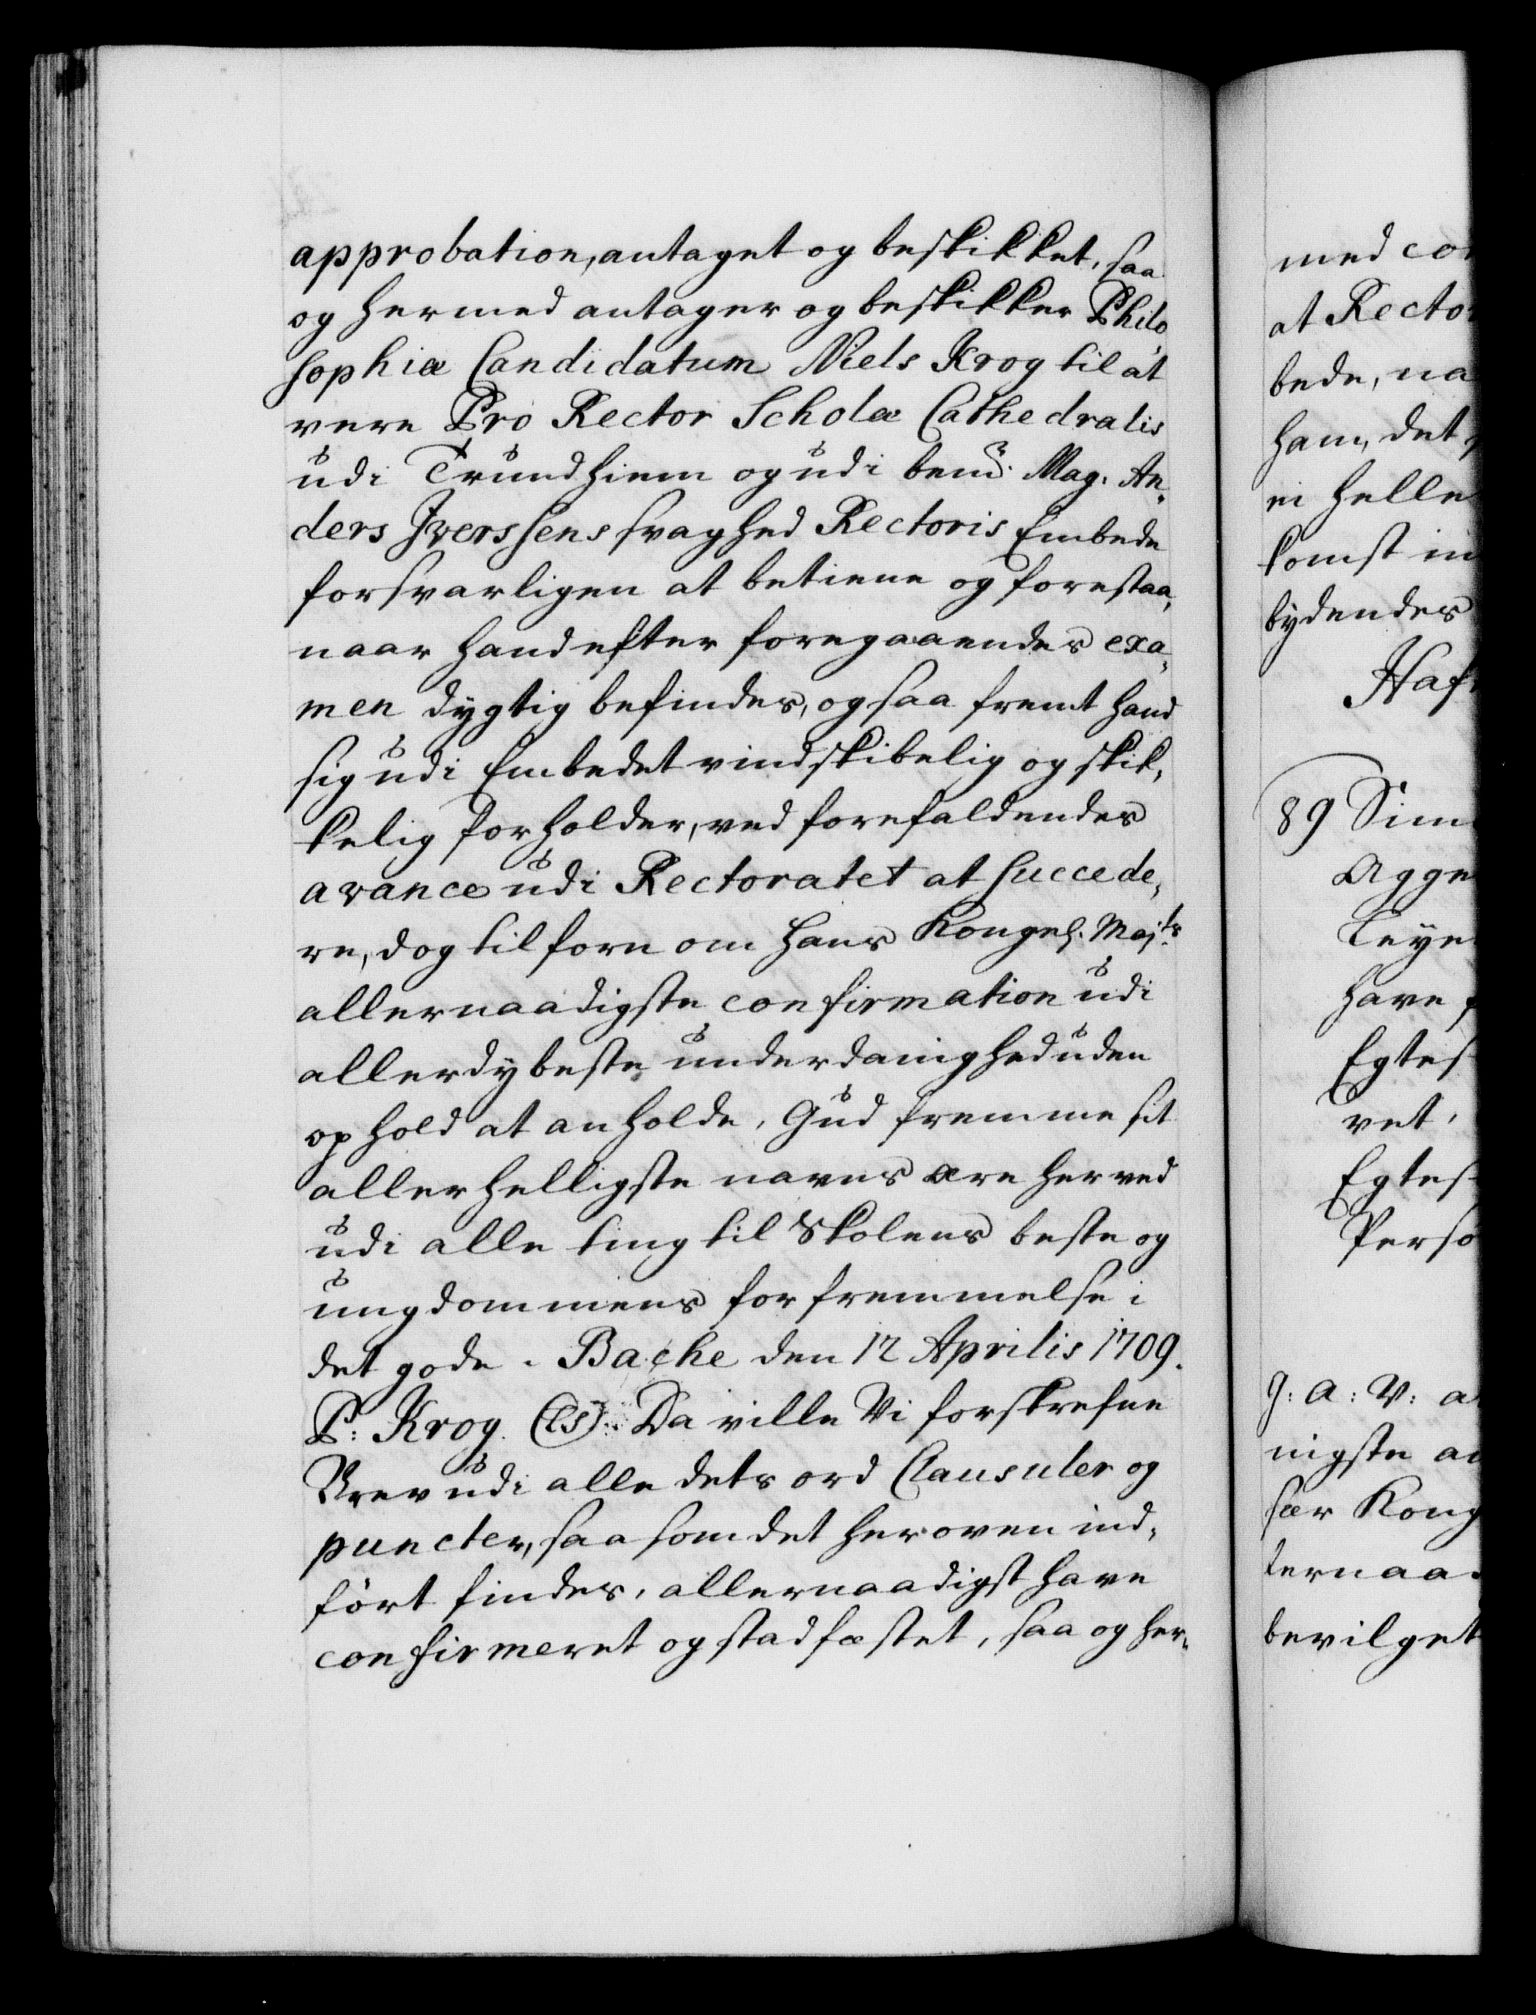 approbation, antaget og beskikket, saa
og hermed antager og beskikker Philo„
sophiæ Candidatum Niels Krog til at
vere Pro Rector Scholæ Cathedralis
udi Trundhiem og udi bemt. Mag. An„
ders Jverssens svaghed Rectoris Embede
forsvarligen at betiene og forestaa,
naar hand efter foregaaendes exa„
men dygtig befindes, og saa fremt hand
sig udi Embedet vindskibelig og skik„
kelig forholder, ved forefaldendes
avance udi Rectoratet at succede„
re, dog tilforn om Hans Kongel. Majts
allernaadigste confirmation udi
allerdybeste underdanighed uden
ophold at anholde. Gud fremme sit
allerhelligste navns ære herved
udi alle ting til Skolens beste og
ungdommens forfremmelse i
det gode. Bache den 12 Aprilis 1709.
P: Krog (LS). Da ville Vi forskrefne
Brev udi alle dets ord Clausuler og
puncter, saa som det heroven ind„
fört findes, allernaadigst have
confirmeret og stadfæstet, saa og her„
med co
at Recto
bede, na
ham, det
ei helle
komst in
bydendes
Haf
89 Sim
Agge
Leye
have
Egtes
vet,
Egtes
Perso
J: A: V: a
nigste an
sær Kong
lernaa
bevilget